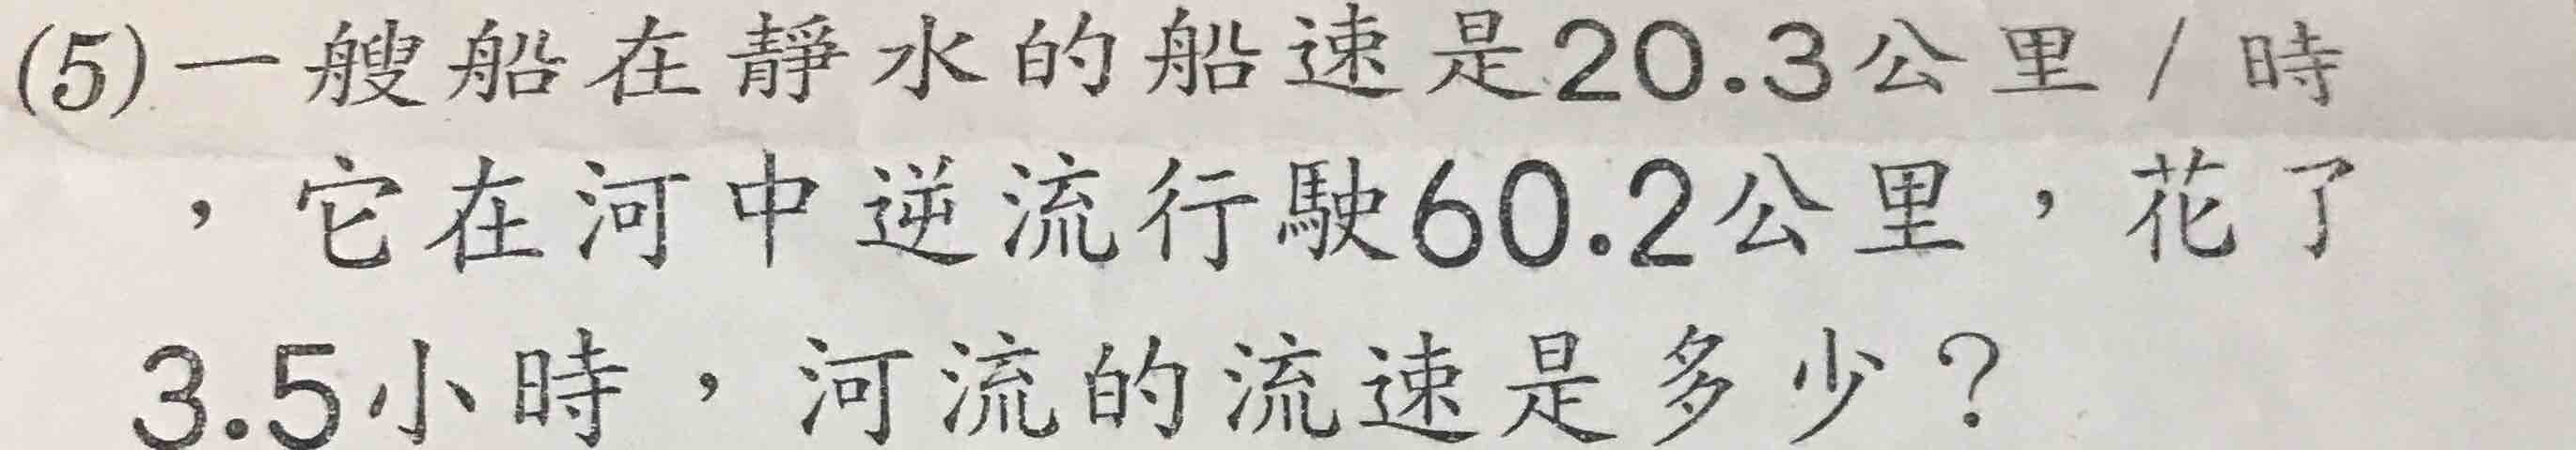 (5)一艘船在靜水的船速是20.3公里/時
，它在河中逆流行駛60.2公里，花了
3.5小時，河流的流速是多少？